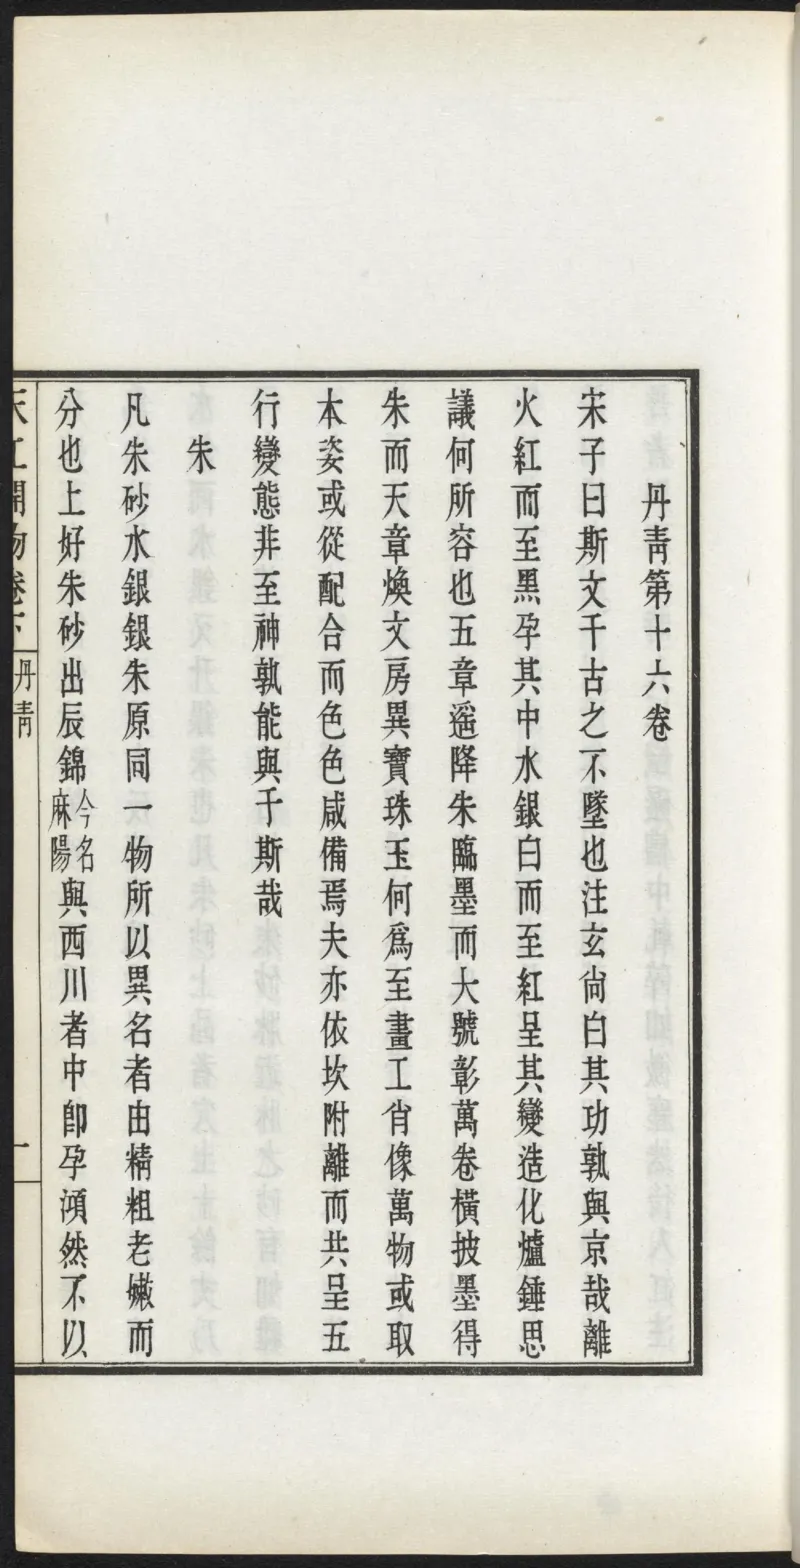 丹靑第十六卷
宋子曰斯文千古之不墜也注玄尙白其功孰與京哉離
火紅而至黑孕其中水銀白而至紅呈其變造化爐錘思
議何所容也五章遥降朱臨墨而大號彰萬卷橫披墨得
朱而天章煥文房異寶珠玉何爲至畫工肖像萬物或取
本姿或從配合而色色咸備焉夫亦依坎附離而共呈五
行變態非至神孰能與于斯哉
朱
凡朱砂水銀銀朱原同一物所以異名者由精粗老嫩而
分也上好朱砂出辰錦今名麻陽與西川者中卽孕澒然不以
天工開物卷下
丹靑
一